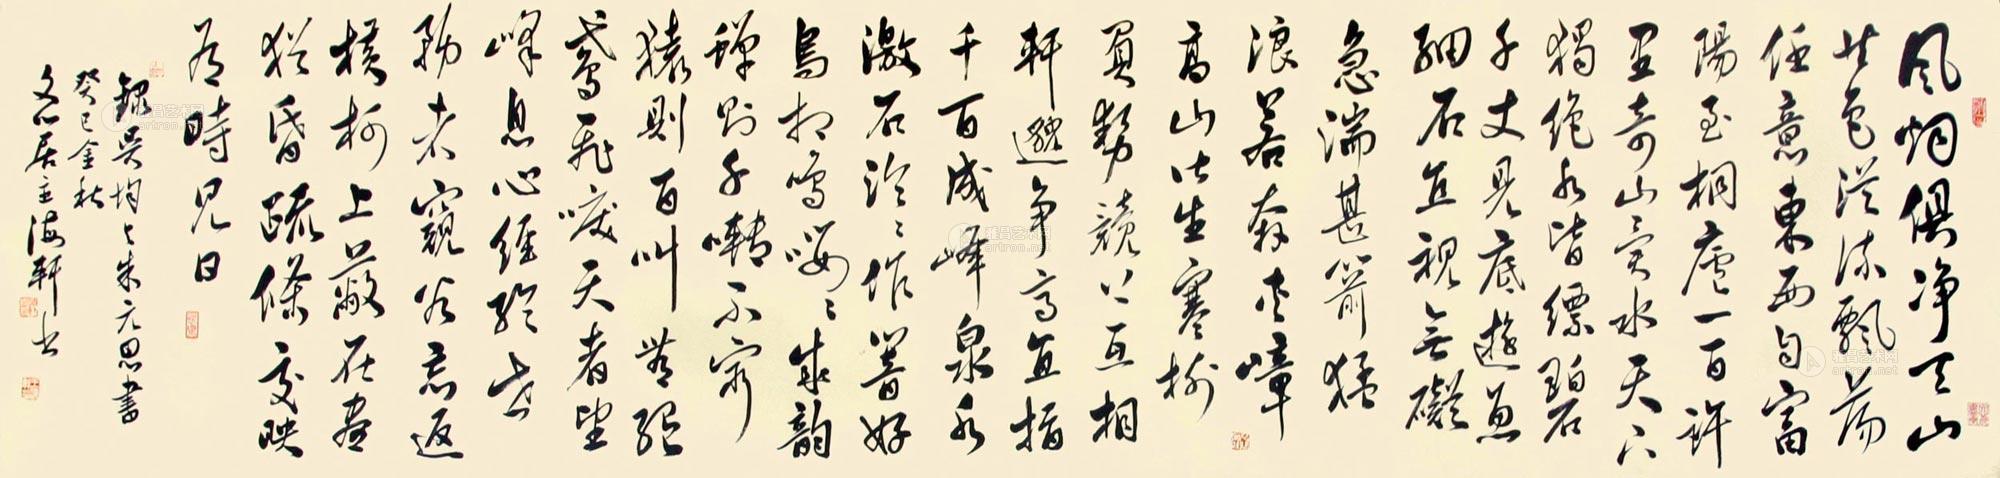 风烟俱净天山
共色從流飄荡
任意東西自富
陽至桐廬一百許
里奇山异水天下
獨绝水皆缥碧
千丈見底遊魚
細石直視無礙
急湍甚箭猛
浪若奔夹嶂
高山皆生寒樹
負勢競上互相
軒邈争高直指
千百成峰泉水
激石泠泠作響好
鳥相鳴嚶嚶成韵
蟬則千囀不窮
猿則百叫無絕
鳶飛唳天者望
峰息心經綸世
務者窺谷忘返
横柯上蔽在晝
猶昏疏條交映
有時見日
録吴均与朱元思書
癸巳金秋
文心居主海軒书
雅昌艺术网
artron.net